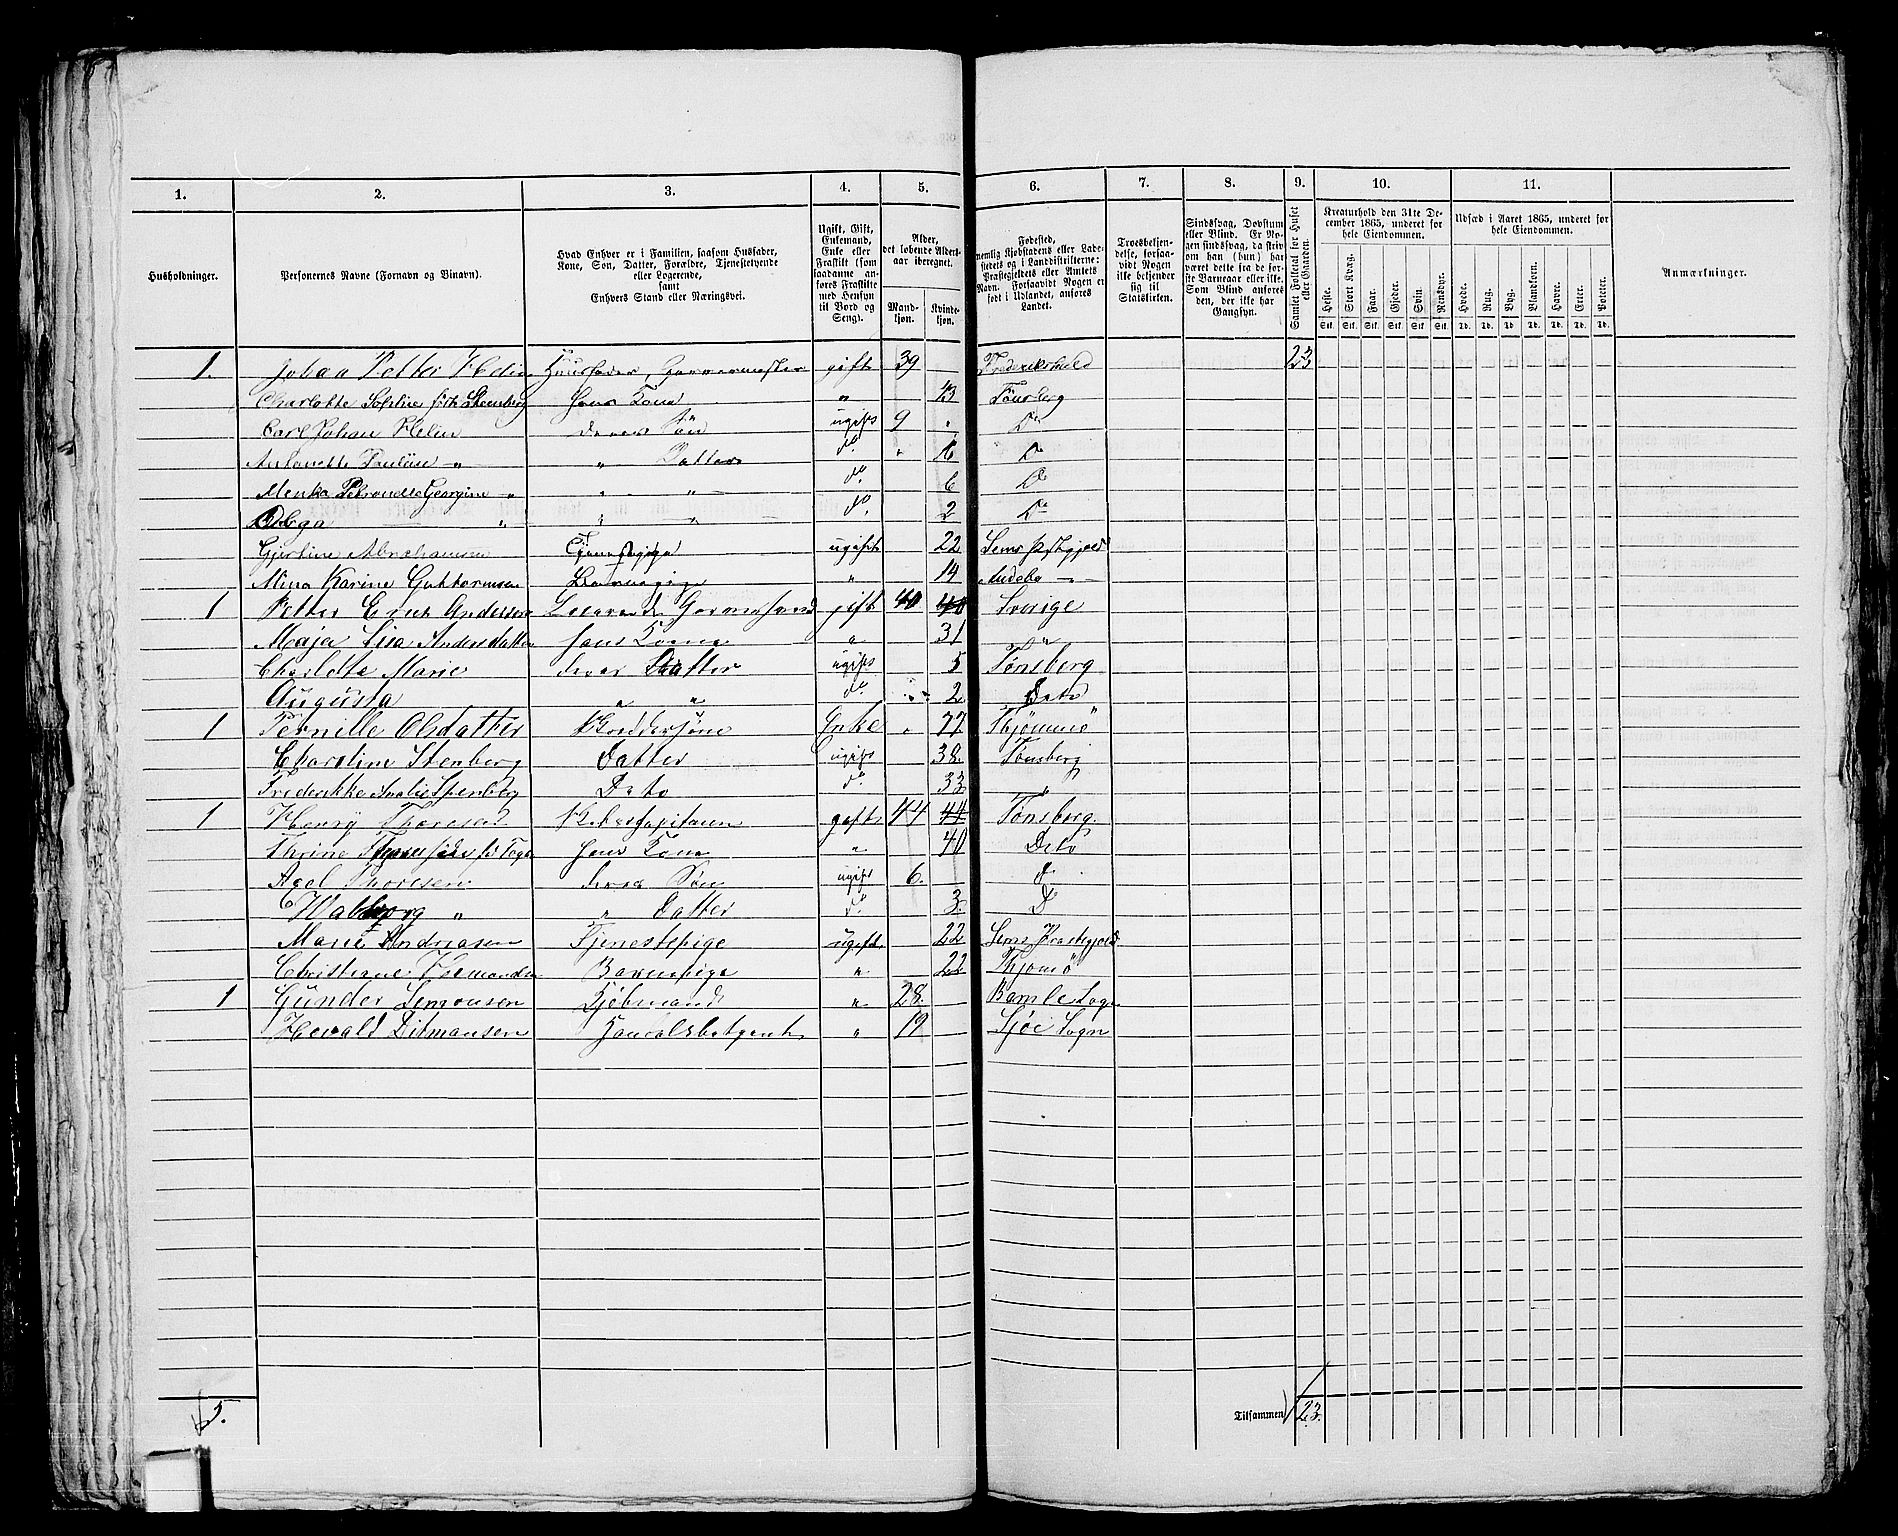 1. 2. 3. 4. 5. 6. 7. 8. 9. 10. 11.
Husholdninger.
Personernes Navne (Fornavn og Binavn).
Hvad Enhver er i Familien, saasom Husfader,
Kone, Søn, Datter, Forældre, Tjenestetyende
eller Logerende,
samt
Enhvers Stand eller Næringsvei.
Ugift, Gift,
Enkemand,
Enke eller
Fraskilt (som
saadanne an-
føres Fraskilte
med Hensyn
til Bord og
Seng).
Alder,
det løbende Alders-
aar iberegnet.
Mand-
kjøn.
Kvinde-
kjøn.
Fødested,
nemlig Kjøbstadens eller Lade-
stedets og i Landdistrikterne:
Præstegjeldets eller Amtets
Navn. Forsaavidt Nogen er
født i Udlandet, anføres
Landet.
Troesbekjen-
delse, forsaa-
vidt Nogen
ikke bekjender
sig til
Statskirken.
Sindssvag, Døvstum
eller Blind. Er No-
gen sindssvag, da skriv
om han (hun) har
været dette fra de før-
ste Barneaar eller ikke.
Som Blind anføres
den, der ikke har
Gangsyn.
Samlet Folketal for Huset
eller Gaarden.
Kreaturhold den 31te De-
cember 1865, underet for
hele Eiendommen.
Heste. Stort Kvæg. Faar. Gjeder. Svin. Rensdyr.
Stk. Stk. Stk. Stk. Stk. Stk.
Udsæd i Aaret 1865, underet for
hele Eiendommen.
Hvede. Rug. Byg. Blandkorn. Havre. Erter. Poteter.
Td. Td. Td. Td. Td. Td. Td.
Anmærkninger.
1. Johan Petter Helin Huusfader, Garvermester gift 39 Frederikshald 23
Charlotte Sophie født Steenberg Hans Kone " 43 Tönsberg
Carl Johan Helin deres Søn ugift 9 " Do
Antonette Pauline " " Datter do. " 6 Do
Menka Petronelle Georgine " " " do. 6 Do
Olga " " " do. 2 Do
Gjertine Abrahamsen Tjenestepige ugift 22 Sems Præstgjeld
Mina Karine Guttormsen Barnepige " 14 Andebo "
1 Petter Erick Andersen Logerende Garversvend gift 40 Sverige
Maja Lisa Andersdatter hans Kone " 31 "
Charlotte Marie deres Datter ugift 5 Tønsberg
Augusta " " do 2 Deto
1 Pernille Olsdatter Enke " 77 Thjømmø
Charoline Stenberg Datter ugift 38. Tønsberg
Frederikke Amalie Stenberg Deto do. 33 "
1 Henry Thoresen gift 44 44 Tønsberg
Thrine hans Kone " 40 Deto
Axel Thoresen deres Søn ugift 6. d
Walborg " " Datter do. 3. D
Marie Andreasen Tjenestepige ugift 22 Sems Præstegjeld
Christiane Barnepige " 22 Thjømø
1 Günder Simonsen Kjøbmand " 28. Bamle Sogn
Hevald Ditmansen Handelsbetjent " 19 Sogn
5.
Tilsammen 23.